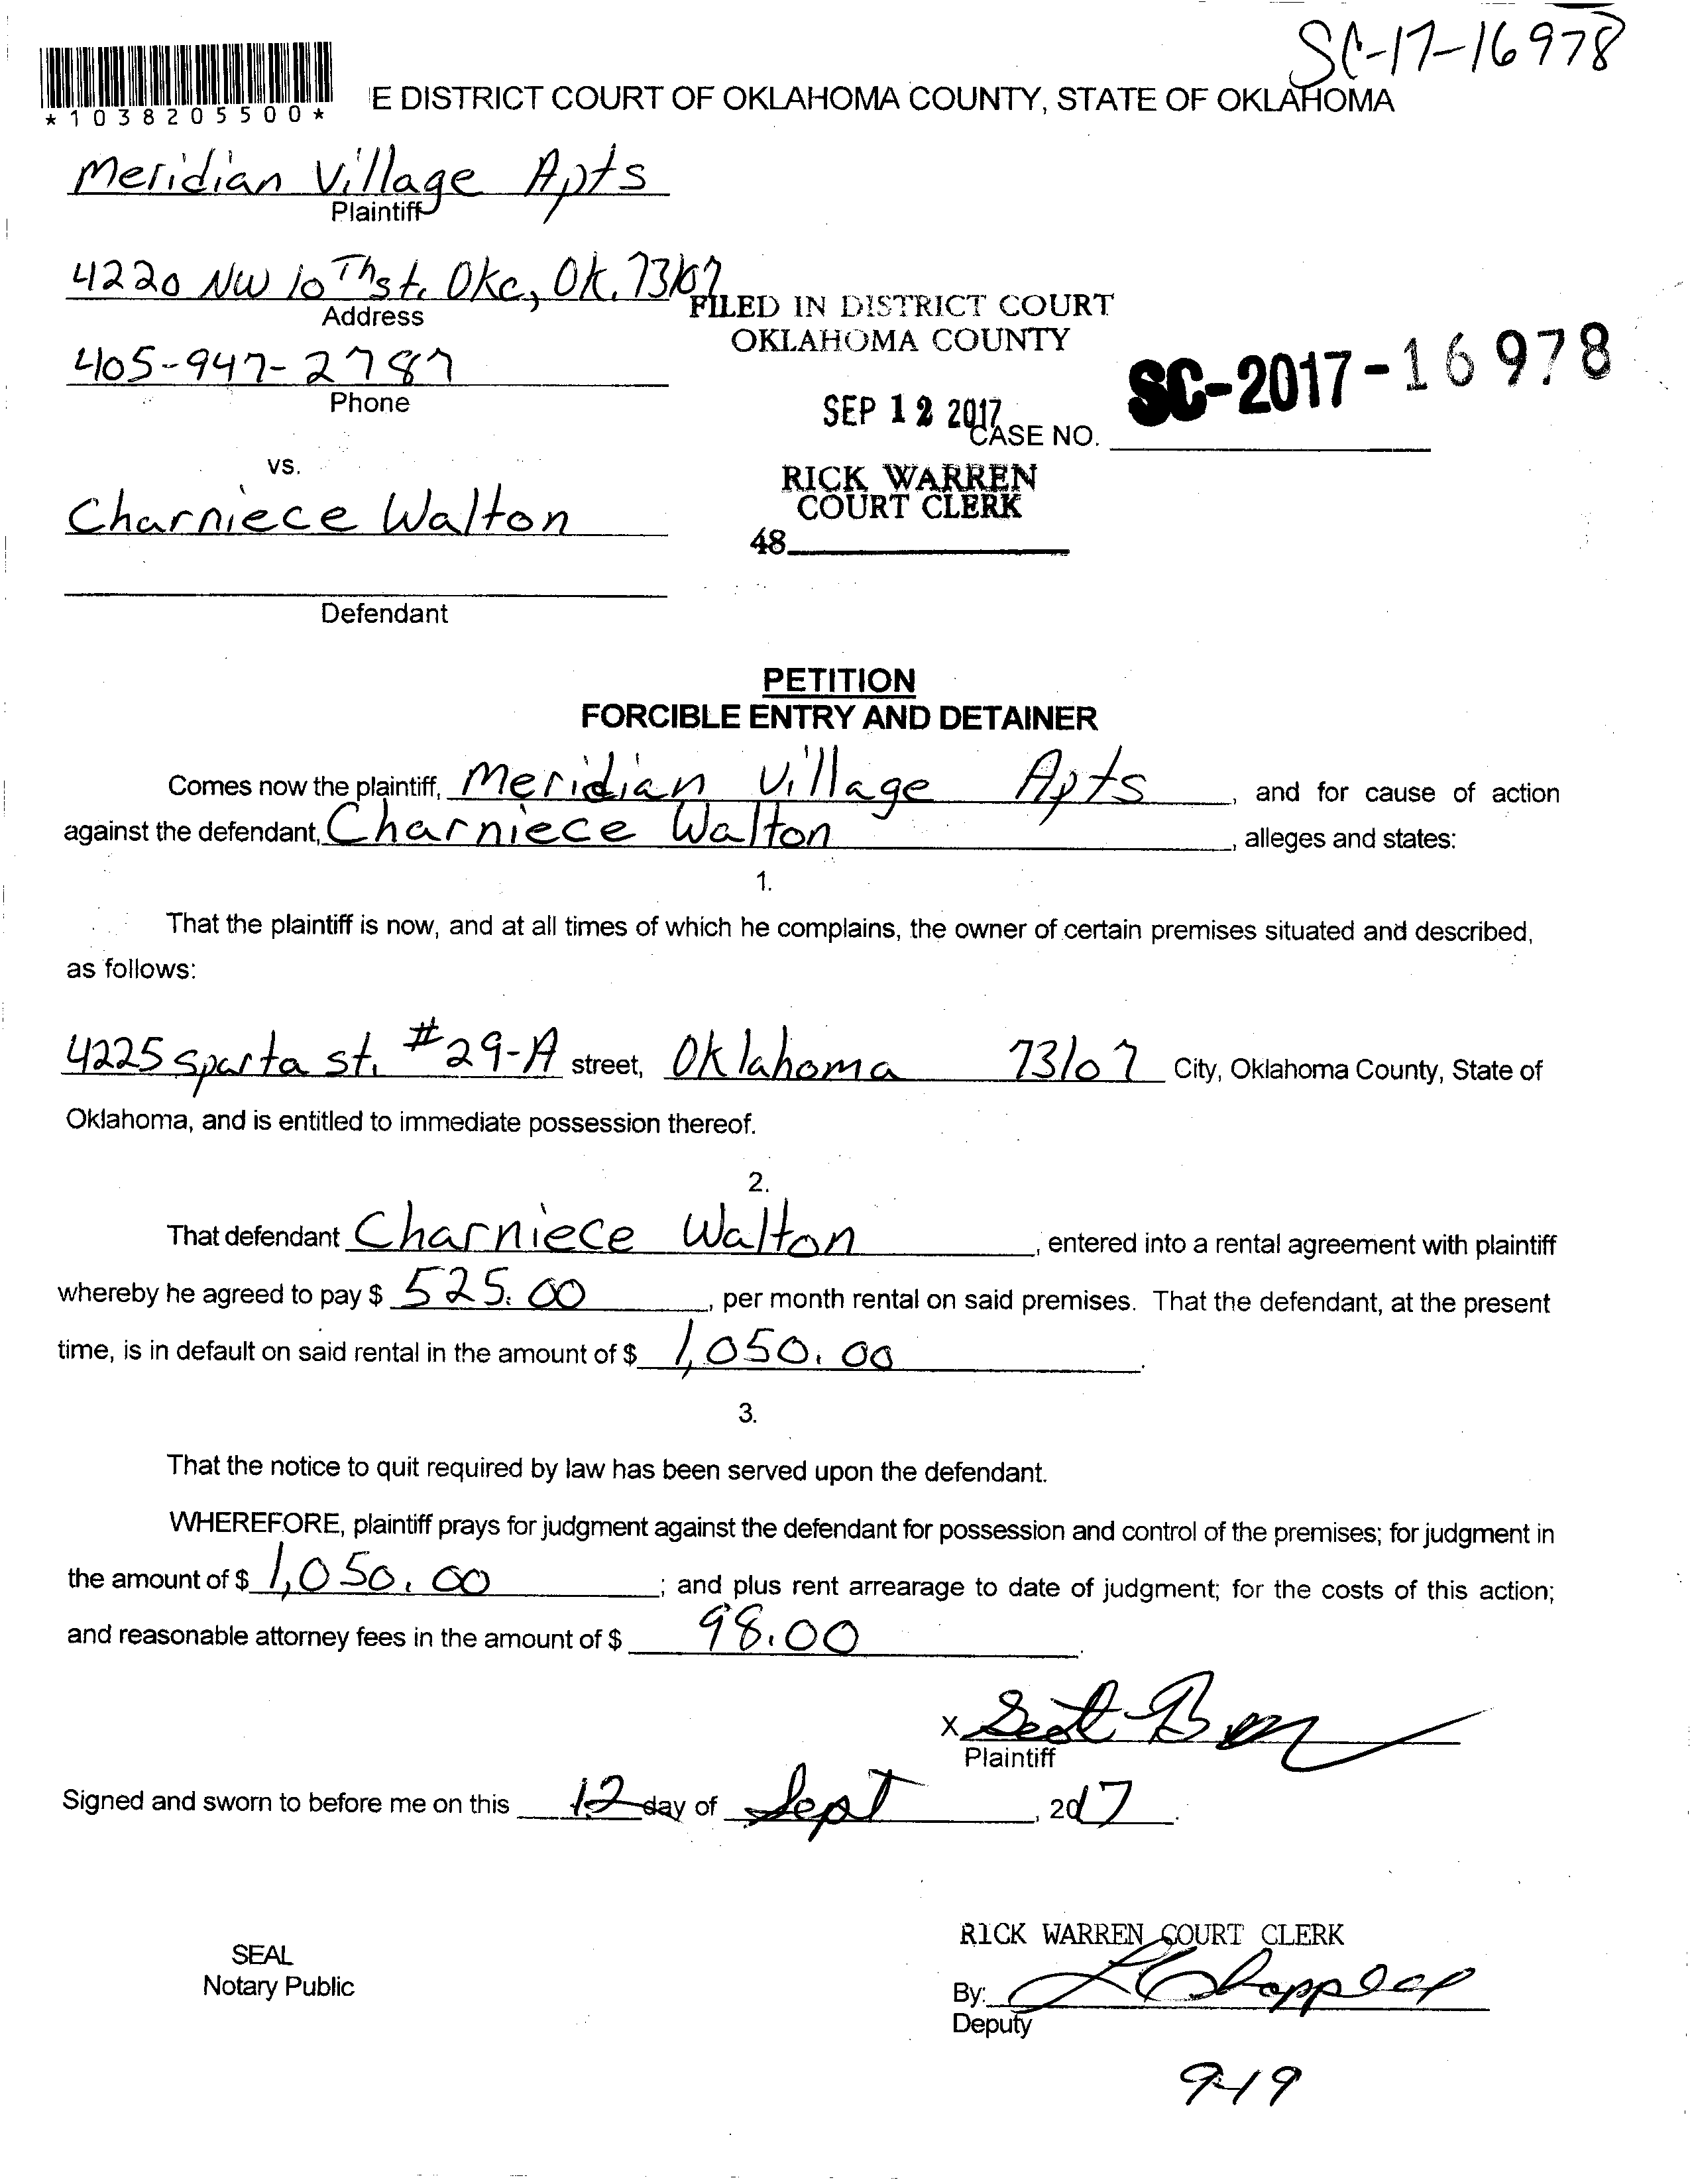 SC-17-16978
*1038205500*
E DISTRICT COURT OF OKLAHOMA COUNTY, STATE OF OKLAHOMA
Meridian Village Apts
Plaintiff
4220 NW 10 Th st. Okc, Ok. 73107
Address
FILED IN DISTRICT COURT
OKLAHOMA COUNTY
405-947-2787
Phone
SEP 12 2017
CASE NO. SC-2017-16978
vs.
RICK WARREN
COURT CLERK
Charniece Walton
48
Defendant
PETITION
FORCIBLE ENTRY AND DETAINER
Comes now the plaintiff, Meridian Village Apts, and for cause of action
against the defendant, Charniece Walton, alleges and states:
1.
That the plaintiff is now, and at all times of which he complains, the owner of certain premises situated and described,
as follows:
4225 sparta st. #29-A street, Oklahoma 73107 City, Oklahoma County, State of
Oklahoma, and is entitled to immediate possession thereof.
2.
That defendant Charniece Walton, entered into a rental agreement with plaintiff
whereby he agreed to pay $ 525.00, per month rental on said premises. That the defendant, at the present
time, is in default on said rental in the amount of $ 1,050.00.
3.
That the notice to quit required by law has been served upon the defendant.
WHEREFORE, plaintiff prays for judgment against the defendant for possession and control of the premises; for judgment in
the amount of $ 1,050.00; and plus rent arrearage to date of judgment; for the costs of this action;
and reasonable attorney fees in the amount of $ 98.00.
X
Plaintiff
Signed and sworn to before me on this 12 day of Sept, 2017.
RICK WARREN COURT CLERK
SEAL
Notary Public
By:
Deputy
9-19